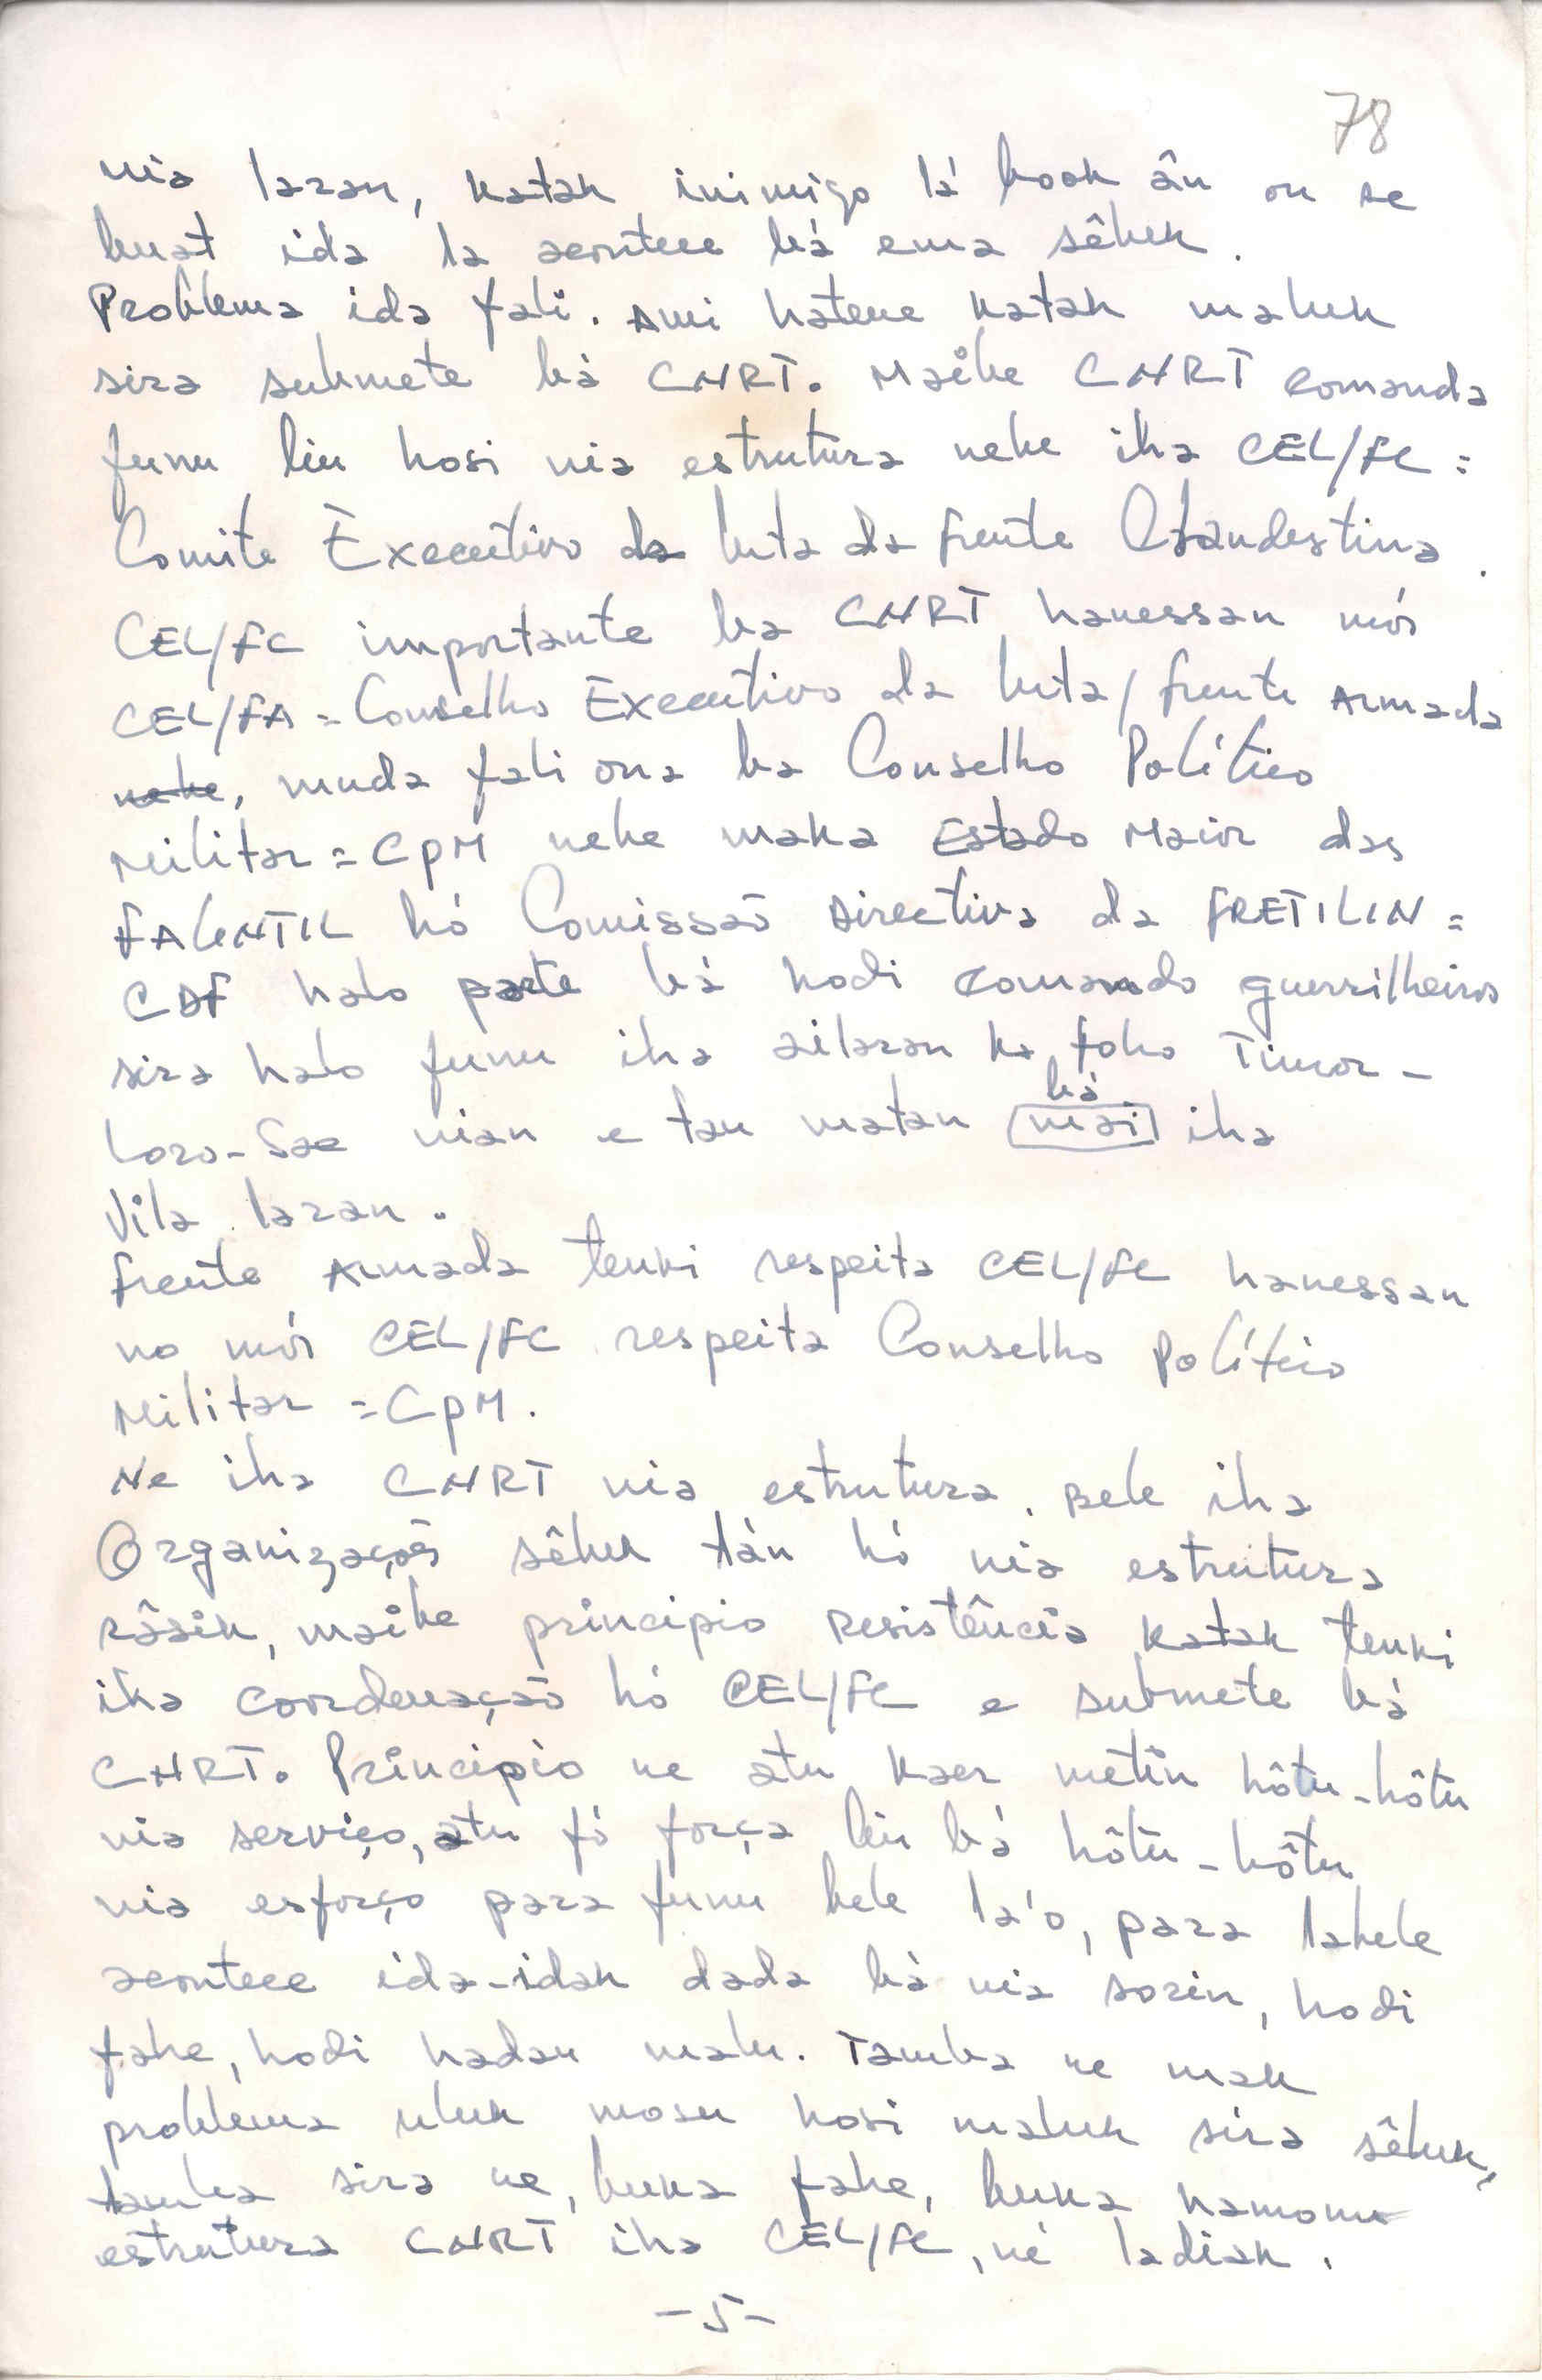 78
nia laran, katak inimigo lá book ân ou se
buat ida la acontece bá ema sêluk.
Problema ida fali. Ami hatene katak maluk
sira submete bá CNRT. Maibe CNRT comanda
funu liu hosi nia estrutura nebe iha CEL/FC =
Comite Executivo da luta da frente Clandestina.
CEL/FC importante ba CNRT hanessan mós
CEL/FA = Conselho Executivo da luta/frente Armada
nebe, muda fali ona ba Conselho Político
Militar = CPM nebe maka Estado Maior das
FALINTIL hó Comissaõ Directiva da FRETILIN =
CDF halo parte bá hodi comando guerrilheiros
sira halo funu iha ailaran ka foho Timor-
Loro-Sae nian e tau matan bá mai iha
Vila laran.
Frente Armada tenki respeita CEL/FC hanessan
no mós CEL/FC respeita Conselho Político
Militar = CPM.
Ne iha CNRT nia estrutura. Bele iha
Organizações sêluk tán hó nia estrutura
râsik, maibe principio Resistência katak tenki
iha coordenação hó CEL/FC e submete bá
CNRT. Principio ne atu kaer metin hôtu-hôtu
nia serviço, atu fó força liu bá hôtu-hôtu
nia esforço para funu bele la'o, para labele
acontece ida-idak dada bá nia sorin, hodi
fahe, hodi hadau malu. Tamba ne mak
problema uluk mosu hosi maluk sira sêluk,
tamba sira ne, buka fahe, buka hamonu
estrutura CNRT iha CEL/FC, né ladiak.
-5-